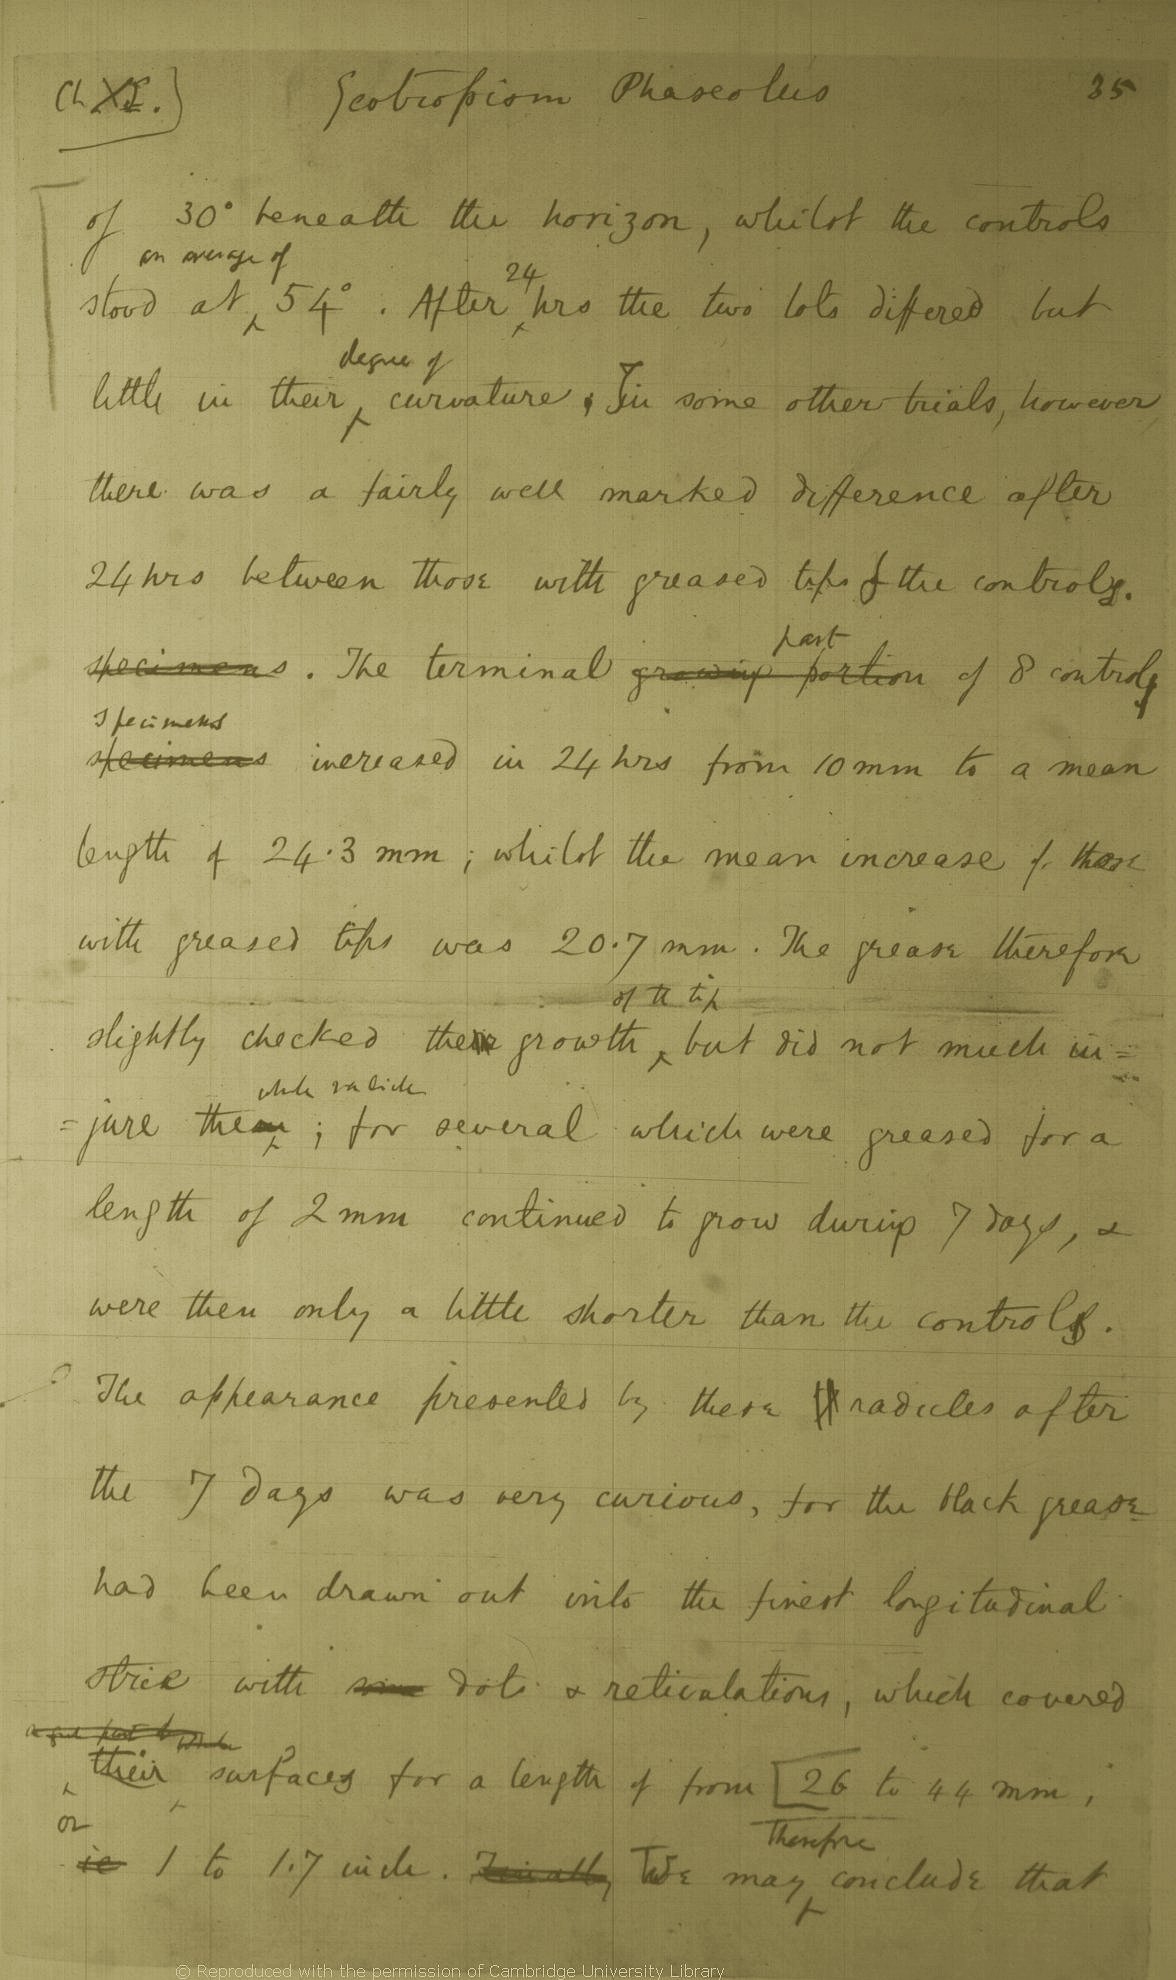 Ch XI.)
Geotropism Phaseolus
35
of 30° beneath the horizon, whilst the controls
an average of
24
stood at 54°. After hrs the two lots differed but
degree of
little in their curvature. In some other trials, however,
there was a fairly well marked difference after
24 hrs between those with greased tips & the controls.
part
specimens. The terminal growing portion of 8 control
specimens
specimens increased in 24 hrs from 10 mm to a mean
length of 24.3 mm; whilst the mean increase of those
with greased tips was 20.7 mm. The grease therefore
of the tip
slightly checked their growth, but did not much in=
whole radicle
=jure them; for several which were greased for a
length of 2 mm continued to grow during 7 days, &
were then only a little shorter than the controls.
The appearance presented by these radicles after
the 7 days was very curious, for the black grease
had been drawn out into the finest longitudinal
striæ with some dots & reticulations, which covered
their surfaces for a length of from 26 to 44 mm,
or
therefore
ie 1 to 1.7 inch. Finally We may conclude that
© Reproduced with the permission of Cambridge University Library